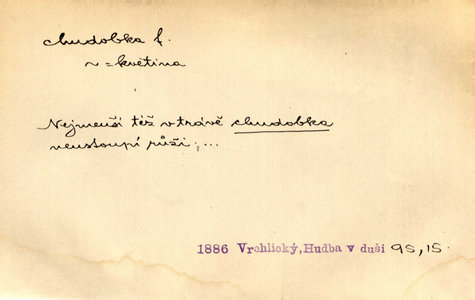 chudobka f.
~ = květina
Nejmenší též v trávě chudobka
neustoupí růži; ...
1886 Vrchlický, Hudba v duši 95, 15.